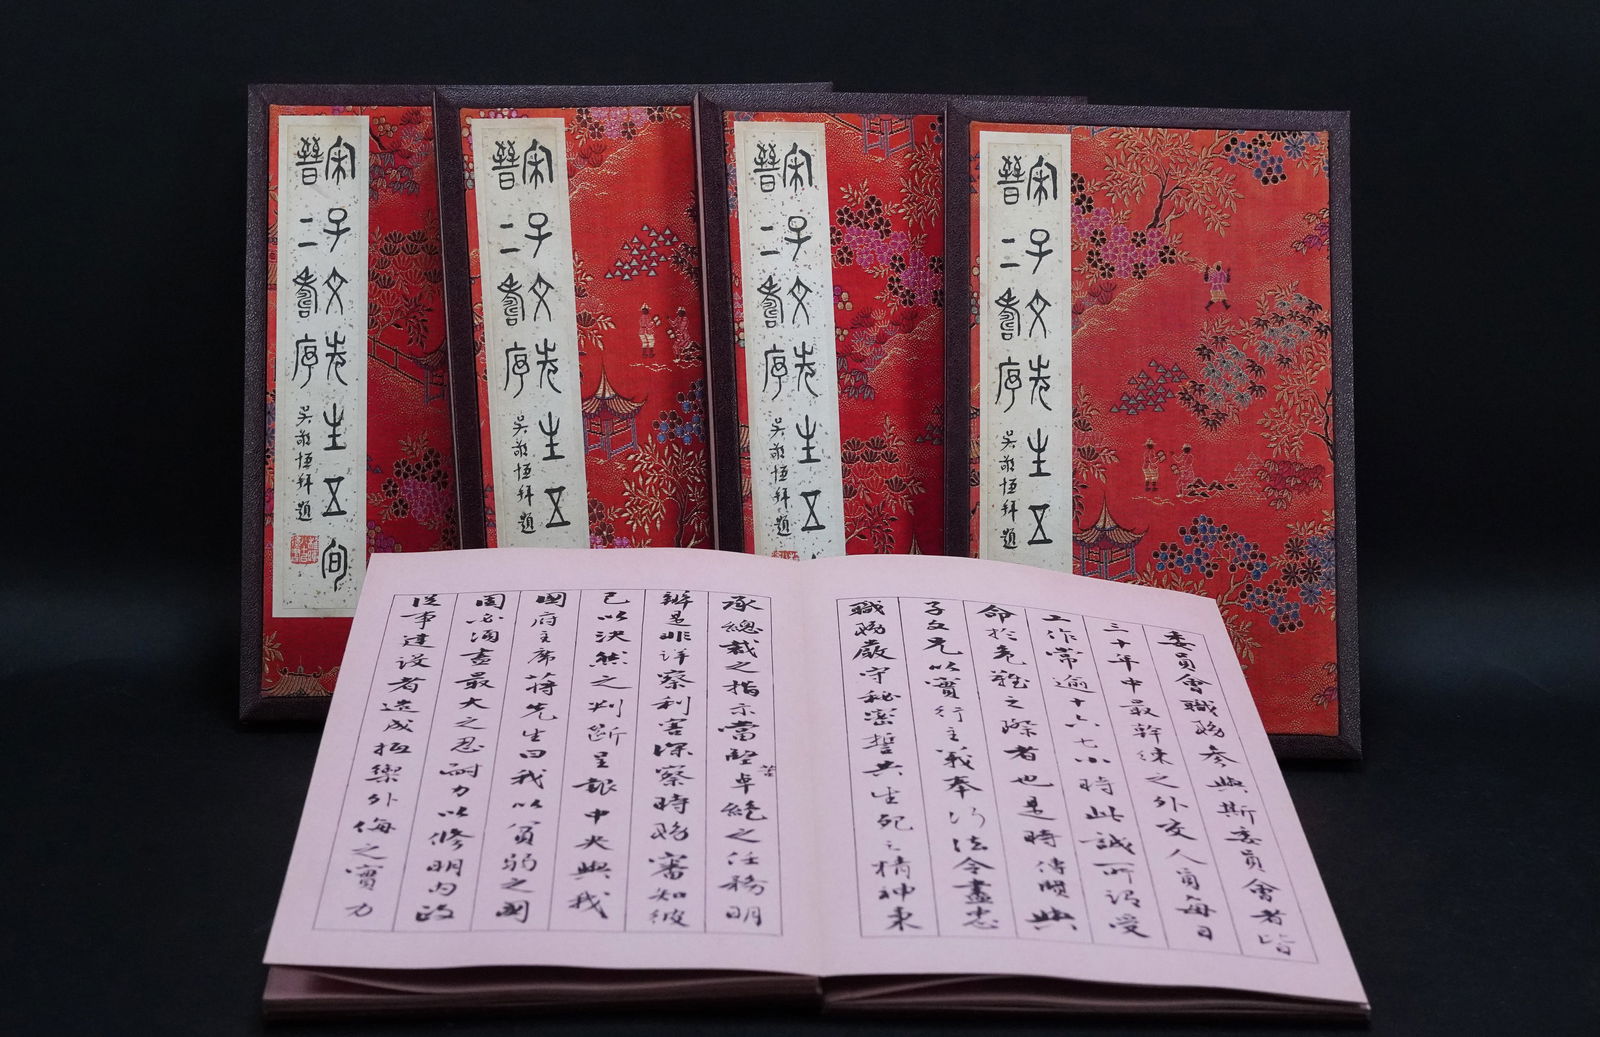 宋子文先生五旬
晉二壽序
吳敬恆拜題
宋子文先生五
晉二壽序
吳敬恆拜題
宋子文先生五
晉二壽序
吳敬恆拜題
宋子文先生五
晉二壽序
吳敬恆拜題
委員會職務參與斯委員會者皆
三十年中最幹練之外交人員每日
工作常逾十六七小時此誠所謂受
命於危難之際者也是時傳與
子文兄以實行主義奉行法令盡忠
職務嚴守秘密誓共生死之精神秉
承總裁之指示當堅苦卓絕之任務明
辨是非詳察利害深察時務審知彼
己以決然之判斷呈報中央與我
國府主席蔣先生曰我以貧弱之國
固必須盡最大之忍耐力以修明內政
從事建設者造成抵禦外侮之實力